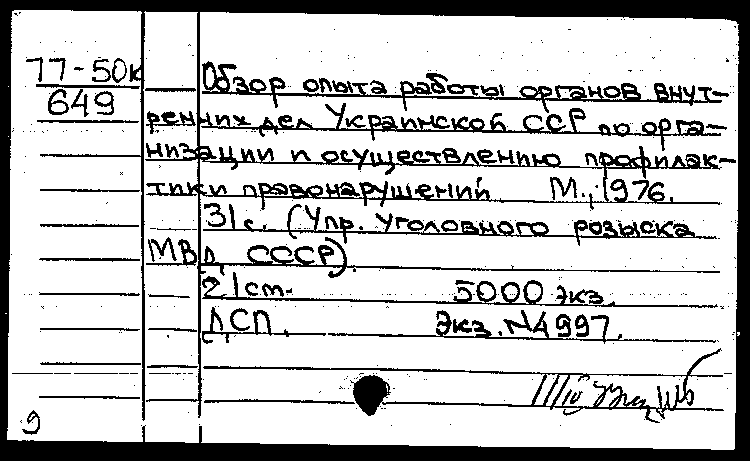 77-50к Обзор опыта работы органов внут-
649
ренних дел Украинской ССР по орга-
низации и осуществлению профилак-
тики правонарушений М., 1976.
31с. (Упр. уголовного розыска
МВД СССР).
21см. 5000 экз.
ДСП. Экз. N4997.
9